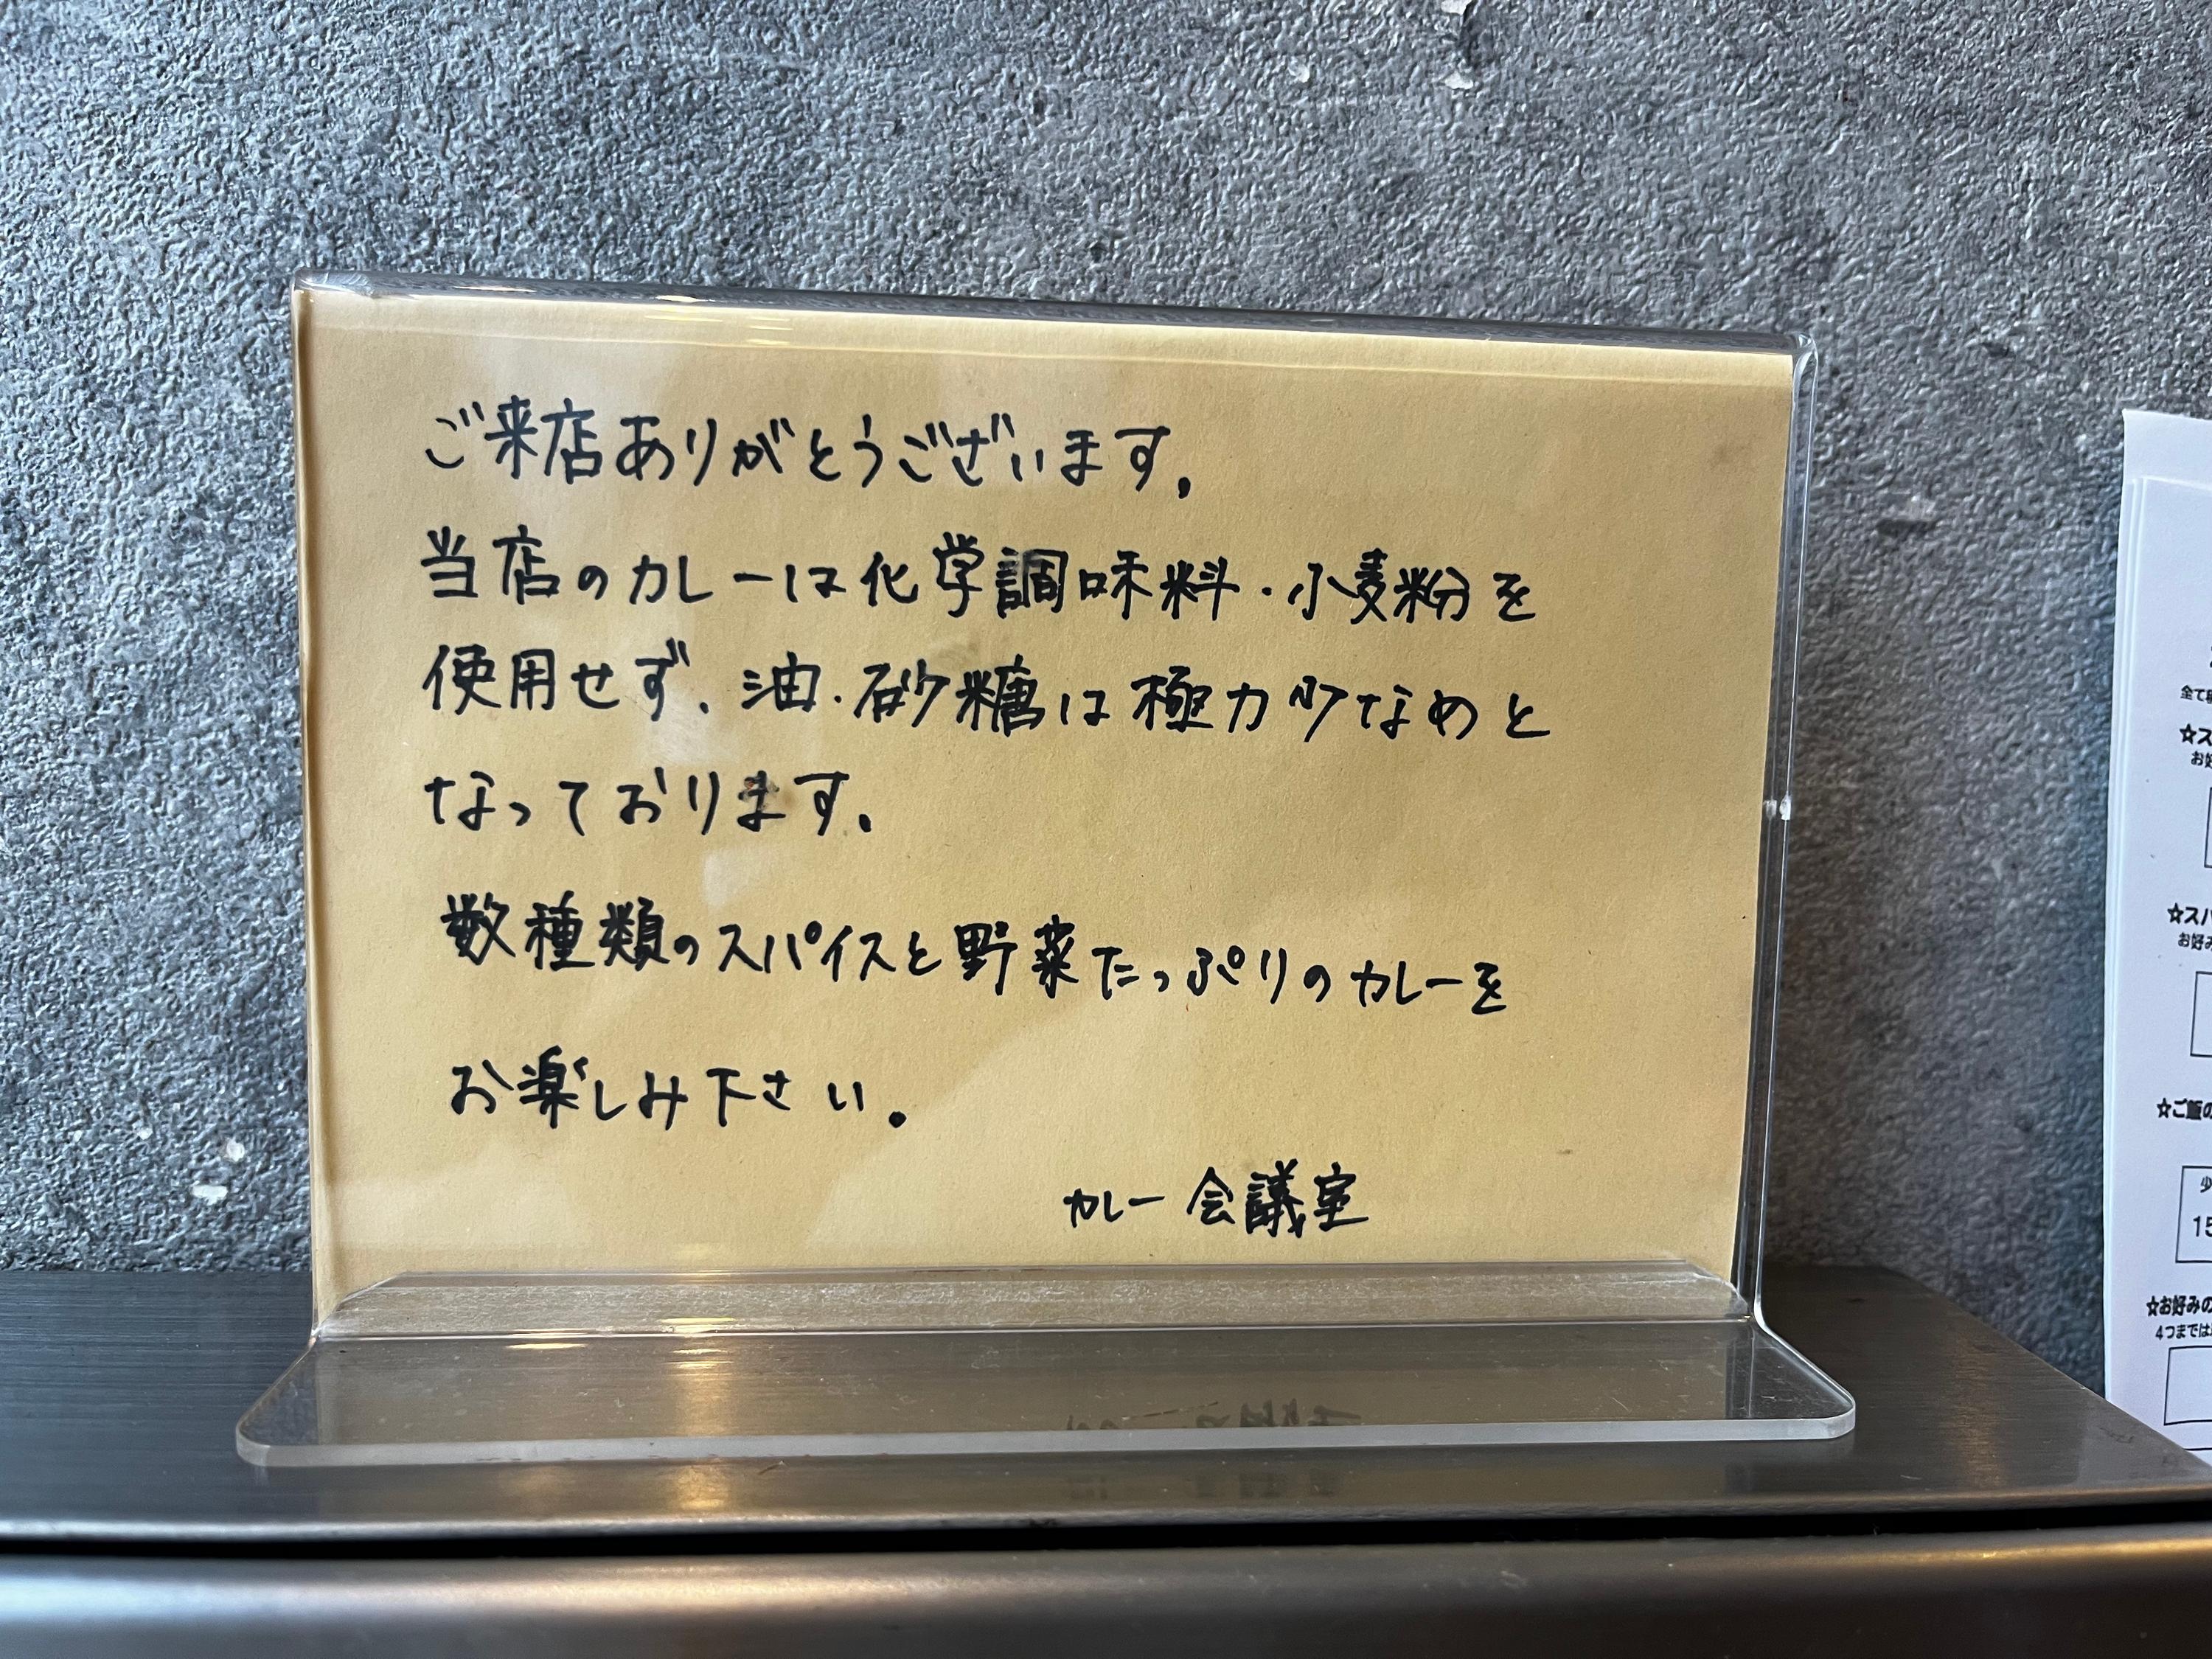 ご来店ありがとうございます。
当店のカレーは化学調味料・小麦粉を
使用せず、油・砂糖は極力少なめと
なっております。
数種類のスパイスと野菜たっぷりのカレーを
お楽しみ下さい。
カレー会議室
全て
☆ス
お好
☆スパ
お好み
☆ご飯の
少
15
☆お好みの
4つまでは